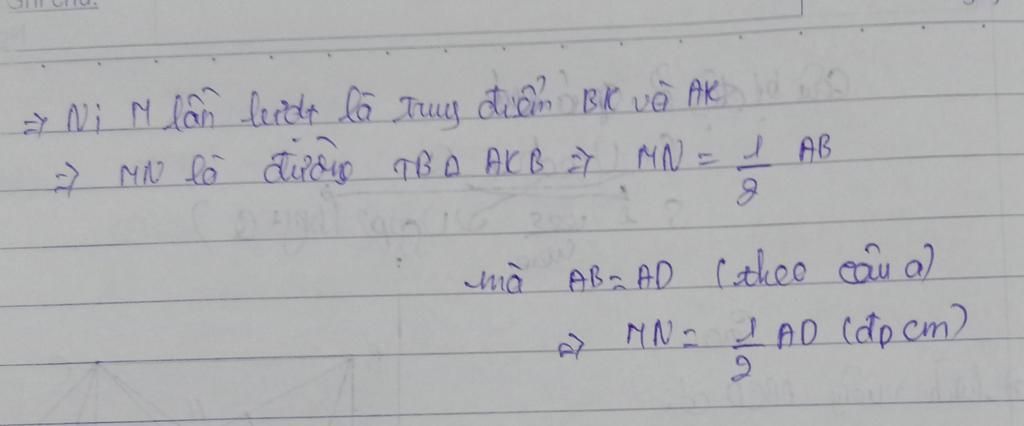 ⇒ N; M lần lượt là trung điểm BK và AK
⇒ MN là đường TB Δ AKB ⇒ MN = 1/2 AB
mà AB = AD (theo câu a)
⇒ MN = 1/2 AD (đpcm)